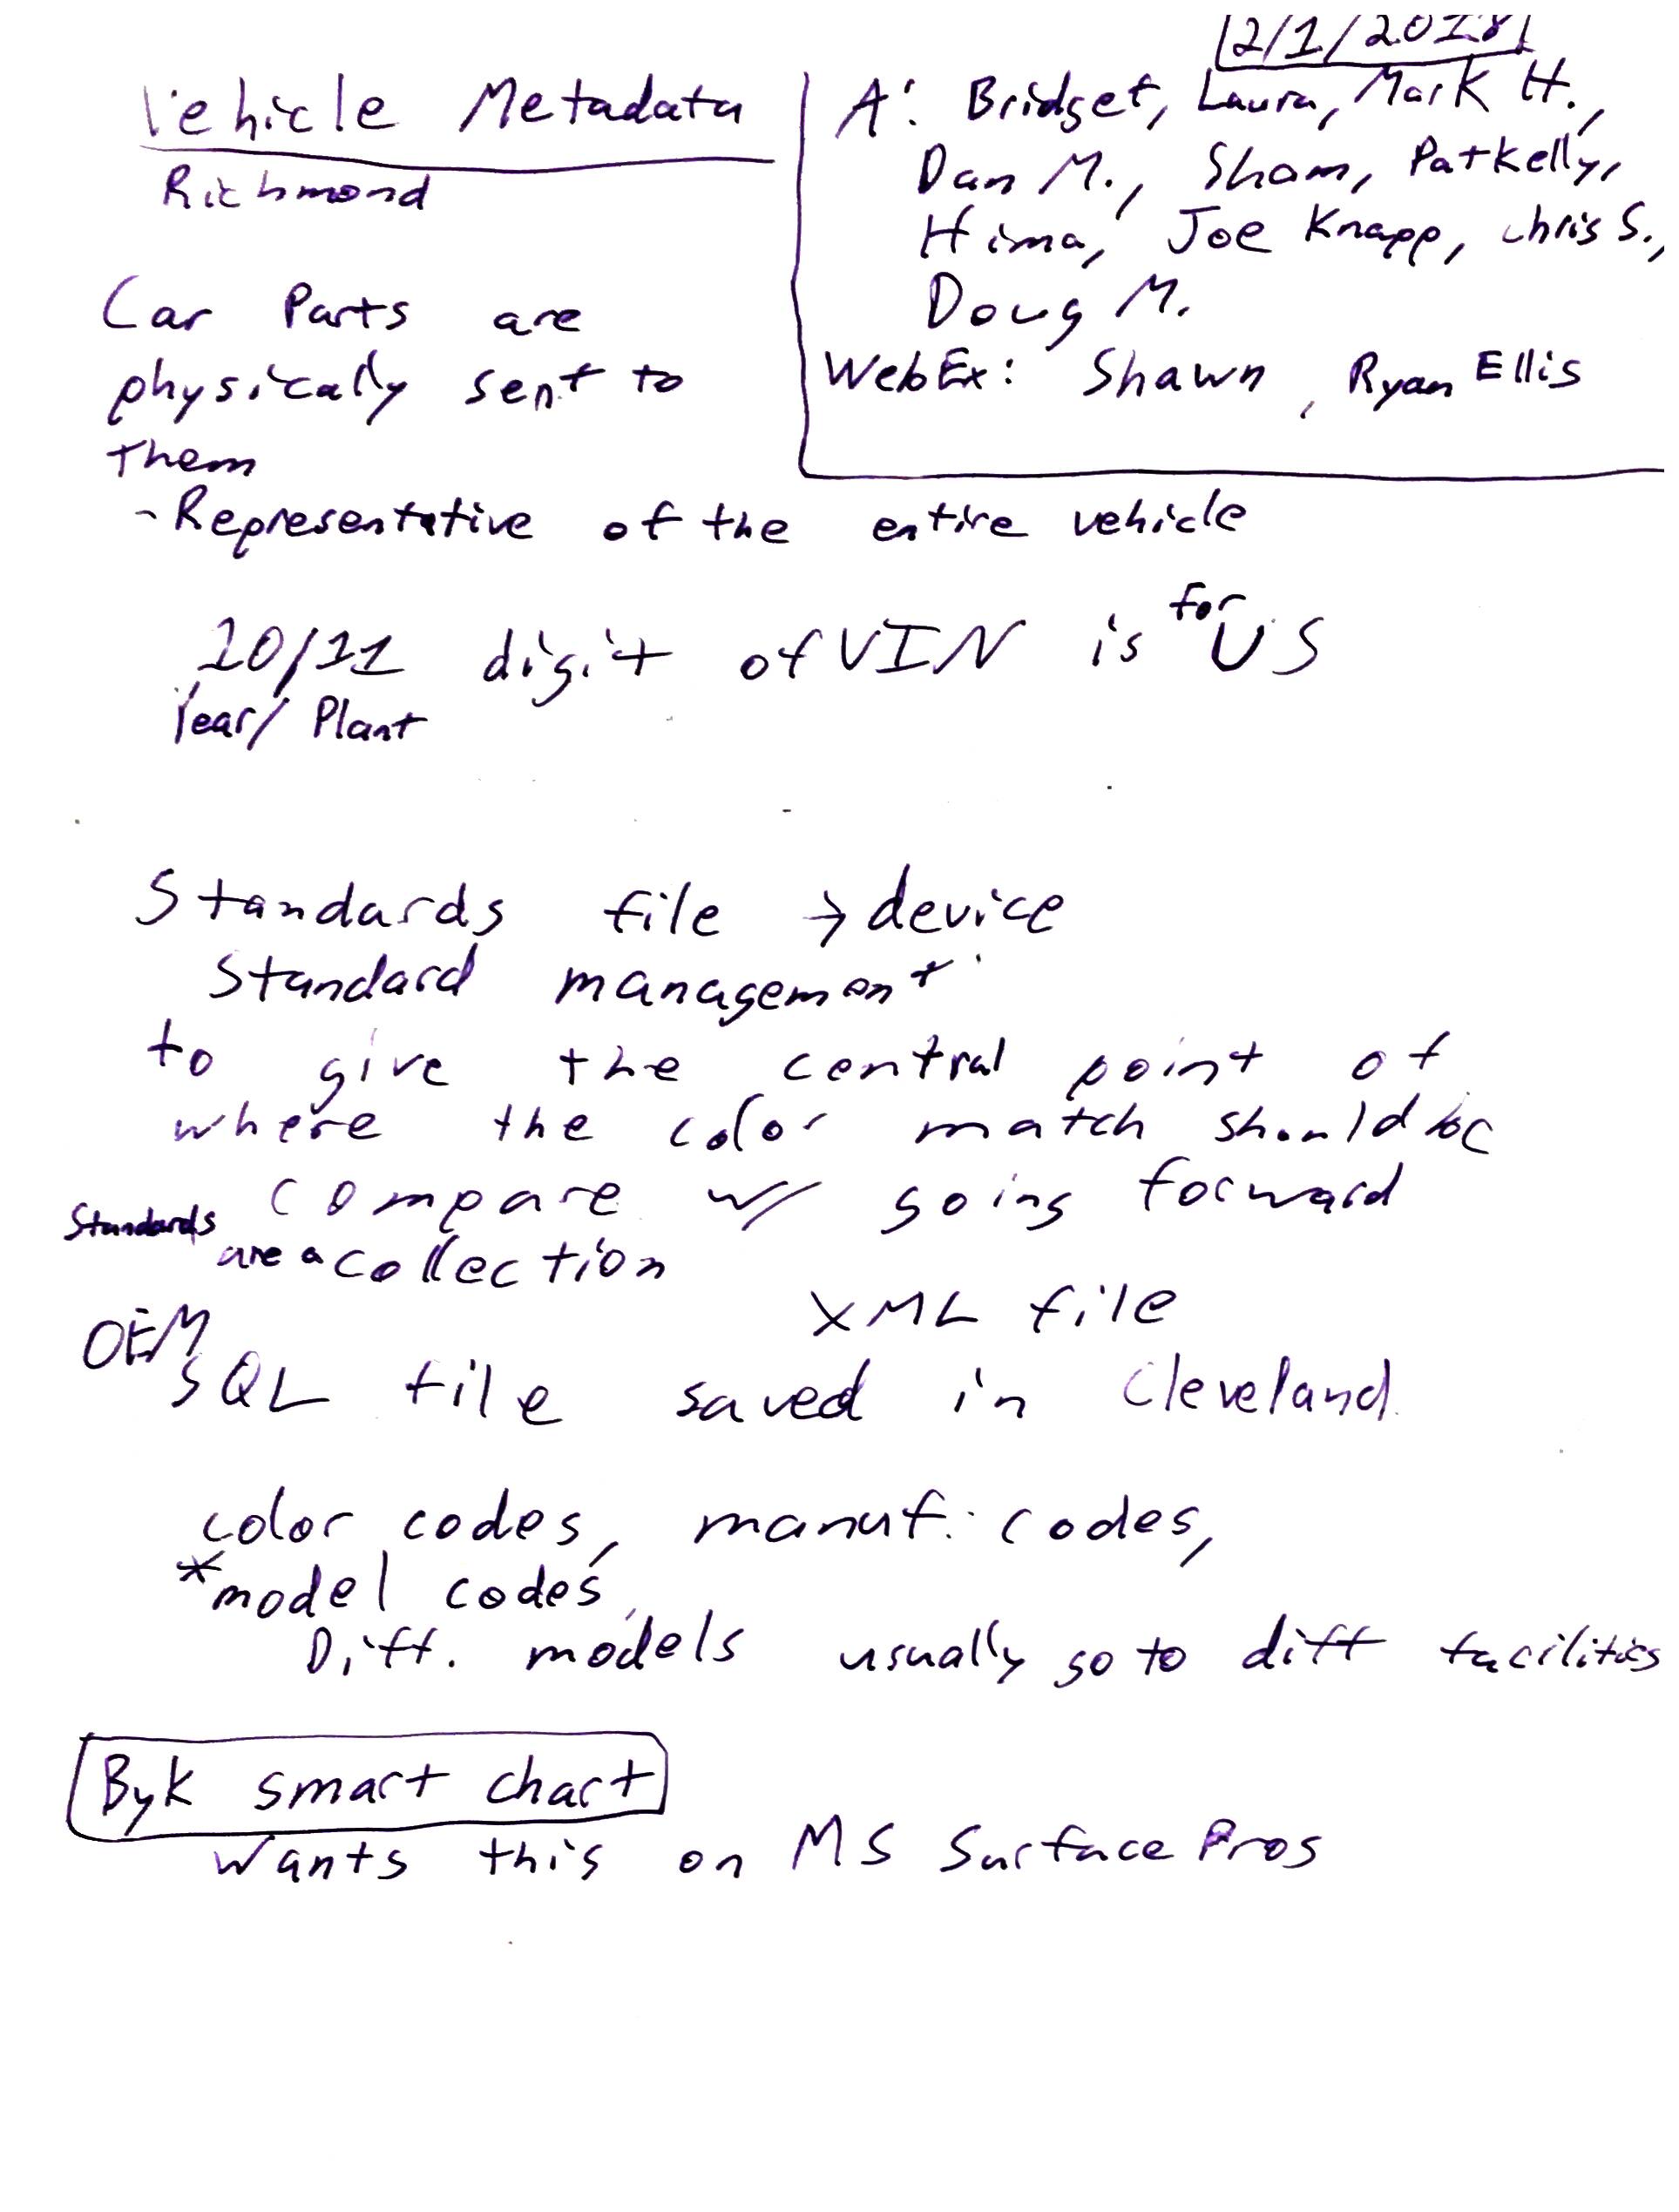 2/1/2018
Vehicle Metadata
Richmond
A: Bridget, Laura, Mark H.,
Dan M., Sham, Pat Kelly,
Hima, Joe Knapp, Chris S.,
Doug M.
WebEx: Shawn, Ryan Ellis
Car Parts are
physically sent to
them
- Representative of the entire vehicle
10/11 digit of VIN is for US
Year/ Plant
Standards file → device
Standard management
to give the central point of
where the color match should be
compare w/ going forward
Standards are a collection
XML file
OEM
SQL file saved in Cleveland
color codes, manuf. codes,
*model codes,
Diff. models usually go to diff facilities
Byk smart chart
Wants this on MS Surface Pros